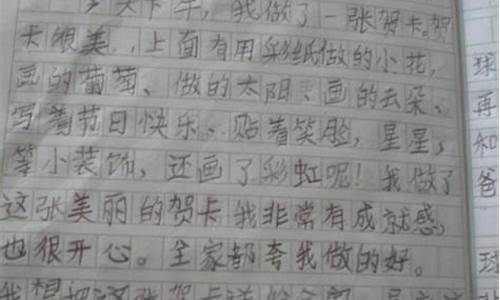 今天下午,我做了一张贺卡。贺
卡很美,上面有用彩纸做的小花,
画的葡萄、做的太阳、画的云朵、
写着节日快乐、贴着笑脸,星星,
等小装饰,还画了彩虹呢!我做了
这张美丽的贺卡我非常有成就感,
也狠开心。全家都夸我做的好。
我想把这张贺卡送给
球
再
和
爸
球